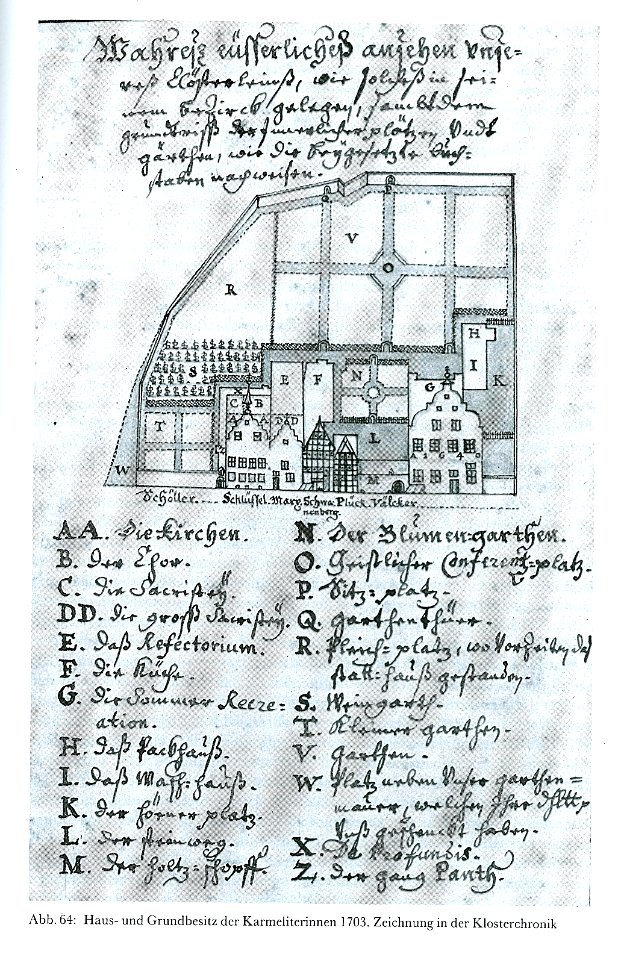 Wahreß eüsserlicheß ansehen vnse-
reß Clösterleinß, wie solcheß in sei-
nem bezirck gelegen, sambt dem
grundtriß der innerlicher plätzen vndt
gärthen, wie die beygesetzte buch-
staben nachweisen.
Q P
V
R
H
I
K
S
X
C B
E F
N
G
T
A A DD
L
M
W
Schöller. Schlüssel. Marg. Schwa- Plück. Välcker.
nenberg.
AA. Die kirchen.
B. der Chor.
C. die Sacristey.
DD. die groß Sacristey.
E. daß Refectorium.
F. die Küche.
G. die Sommer Recre-
ation.
H. daß Packhauß.
I. daß Wasch-hauß.
K. der höner platz.
L. der steinweg.
M. der holtz-schopff.
N. Der Blumen-garthen.
O. Geistlicher Conferentz-platz.
P. Sitz-platz.
Q. garthenthüer.
R. Bleich-platz, wo Vorzeiten daß
stall-hauß gestanden.
S. Weingarth.
T. Kleiner garthen.
V. garthen.
W. Platz neben Vnser garthen-
mauer, welchen Ihre
Vnß geschenckt haben.
X. De Profundis.
Z. der gang
Abb. 64: Haus- und Grundbesitz der Karmeliterinnen 1703. Zeichnung in der Klosterchronik